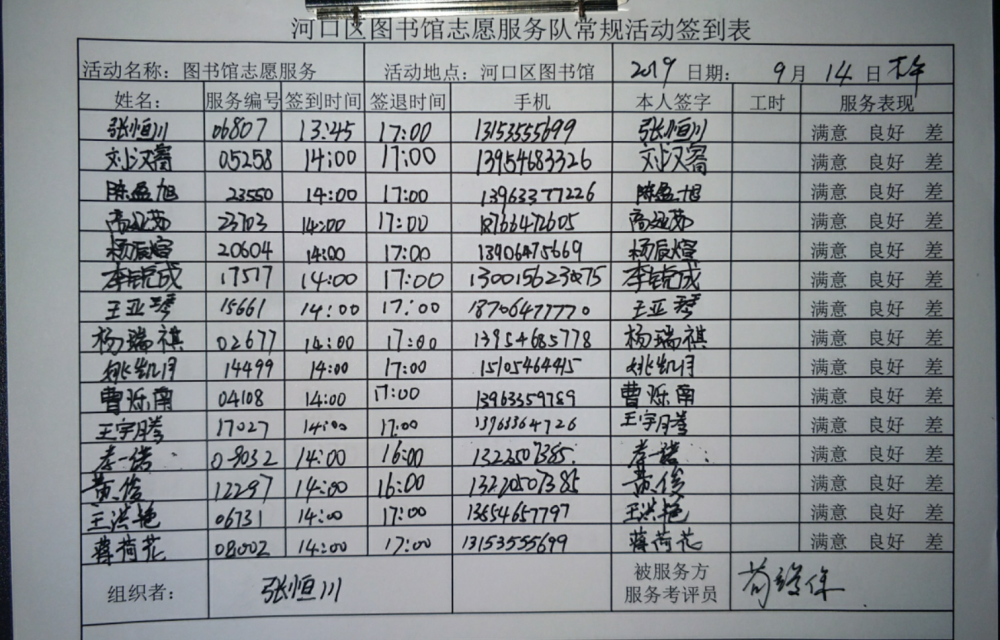 河口区图书馆志愿服务队常规活动签到表
活动名称：图书馆志愿服务 活动地点：河口区图书馆 2019 日期： 9月 14日
姓名： 服务编号 签到时间 签退时间 手机 本人签字 工时 服务表现
张恒川 06807 13:45 17:00 13153555699 张恒川 满意 良好 差
刘汉 05258 14:00 17:00 13954683326 刘汉 满意 良好 差
陈盈旭 23550 14:00 17:00 13963377226 陈盈旭 满意 良好 差
高亚茹 23703 14:00 17:00 18766472605 高亚茹 满意 良好 差
杨辰煊 20604 14:00 17:00 13906475669 杨辰煊 满意 良好 差
李锐成 17517 14:00 17:00 李锐成 满意 良好 差
王亚琴 15661 14:00 17:00 18706477770 王亚琴 满意 良好 差
杨瑞祺 02677 14:00 17:00 13954685778 杨瑞祺 满意 良好 差
姚凯月 14499 14:00 17:00 姚凯月 满意 良好 差
曹烁南 04108 14:00 17:00 13963359789 曹烁南 满意 良好 差
王宇腾 17027 14:00 17:00 13963364726 王宇腾 满意 良好 差
李一诺 08032 14:00 16:00 李一诺 满意 良好 差
黄俊 12297 14:00 16:00 13220507385 黄俊 满意 良好 差
王洪艳 06731 14:00 17:00 13654657797 王洪艳 满意 良好 差
蒋荷花 08002 14:00 17:00 13153555699 蒋荷花 满意 良好 差
组织者： 张恒川 被服务方
服务考评员